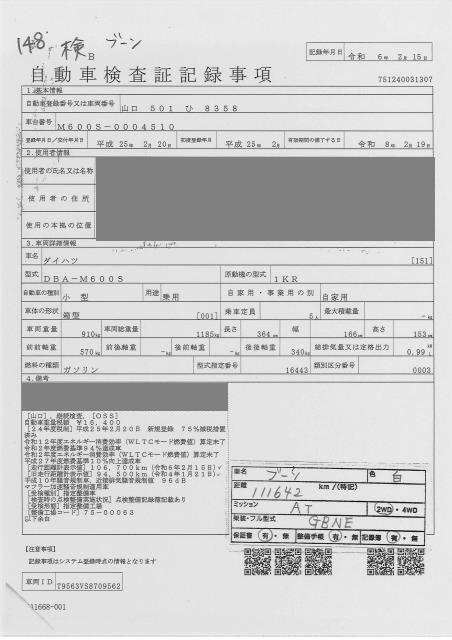 148 検B ブーン
記録年月日 令和 6年 2月 15日
自動車検査証記録事項
751240031307
1.基本情報
自動車登録番号又は車両番号 山口 501 ひ 8358
車台番号 M600S-0004510
登録年月日/交付年月日 平成 25年 2月 20日 初度登録年月 平成 25年 2月 有効期間の満了する日 令和 8年 2月 19日
2.使用者情報
使用者の氏名又は名称
使用者の住所
使用の本拠の位置
3.車両詳細情報
車名 ダイハツ [151]
型式 DBA-M600S 原動機の型式 1KR
自動車の種別 小型 用途 乗用 自家用・事業用の別 自家用
車体の形状 箱型 [001] 乗車定員 5人 最大積載量 -kg
車両重量 910kg 車両総重量 1185kg 長さ 364cm 幅 166cm 高さ 153cm
前前軸重 570kg 前後軸重 -kg 後前軸重 -kg 後後軸重 340kg 総排気量又は定格出力 0.99
燃料の種類 ガソリン 型式指定番号 16443 類別区分番号 0003
4.備考
[山口],継続検査,[OSS]
自動車重量税額 ¥16,400
[24年度税制]平成25年2月20日 新規登録 75%減税措置
済み
令和12年度エネルギー消費効率(WLTCモード燃費値)算定未了
令和2年度燃費基準94%達成車
令和2年度エネルギー消費効率(WLTCモード燃費値)算定未了
平成27年度燃費基準10%向上達成車
[走行距離計表示値]106,700km(令和6年2月15日)
[旧走行距離計表示値]94,500km(令和4年1月21日)
平成10年騒音規制車,近接排気騒音規制値 96dB
マフラー加速騒音規制適用車
[受検種別]指定整備車
[検査時の点検整備実施状況]点検整備記録簿記載あり
[受検形態]指定整備工場
[整備工場コード]75-00063
以下余白
車名 ブーン 色 白
距離 111642 km/(特記)
ミッション AT 2WD・4WD
架装・フル型式 GBNE
保証書 有・無 整備手帳 有・無 記録簿 有・無
[注意事項]
記録事項はシステム登録時点の情報となります
車両ID T9563VS8709562
31668-001